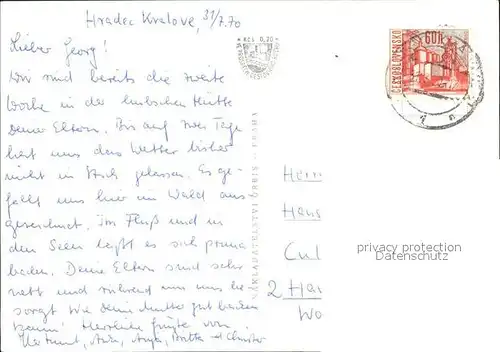 Hradec Kralove, 31/7.70
Lieber Georg!
Wir sind bereits die zweite
Woche in der hübschen Hütte
Deiner Eltern. Bis auf zwei Tage
hat uns das Wetter bisher
nicht in Stich gelassen. Es ge-
fällt uns hier im Wald aus-
gezeichnet. Im Fluß und in
den Seen läßt es sich prima
baden. Deine Eltern sind sehr
nett und rührend um uns be-
sorgt wie Deine Mutter gut backen
kann! Herzliche Grüße von
Anja, Britta + Christer
KČS 0,30
NAKLADATELSTVÍ ORBIS - PRAHA
ČESKOSLOVENSKO
60h
Herrn
Hans
Cul
2 Ha
Wo
privacy protection
Datenschutz